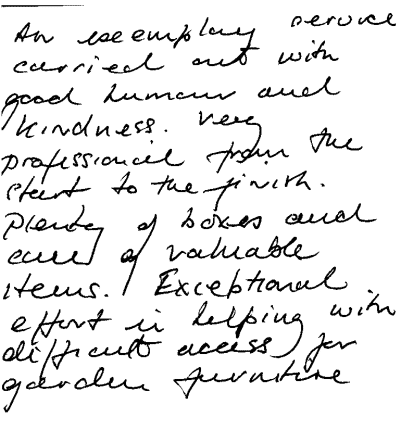 An exemplary service
carried out with
good humour and
kindness. Very
professional from the
start to the finish.
Plenty of boxes and
care of valuable
items. Exceptional
effort in helping with
difficult access for
garden furniture